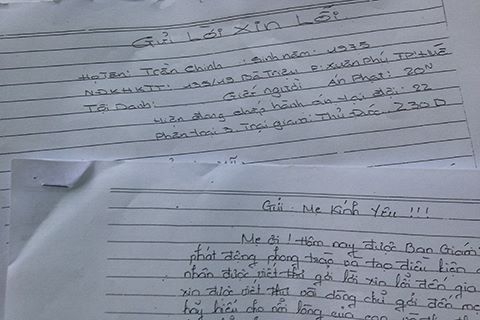 GỬI LỜI XIN LỖI
Họ Tên: Trần Chinh : Sinh năm: 1935
N.ĐKHKTT: 499/49 Bà Triệu P: Xuân Phú TP: Huế
Tội Danh: Giết người Án Phạt: 20N
Hiện đang chấp hành án tại đội: 22
Phân trại 2 Trại giam: Thủ Đức, Z30D
Gửi: Mẹ Kính Yêu !!!
Mẹ ơi! Hôm nay được Ban Giám
phát động phong trào và tạo điều kiện
nhân được viết thư gởi lời xin lỗi đến gia
xin được viết thư vài dòng chữ gởi đến mẹ
hãy hiểu cho nỗi lòng của con